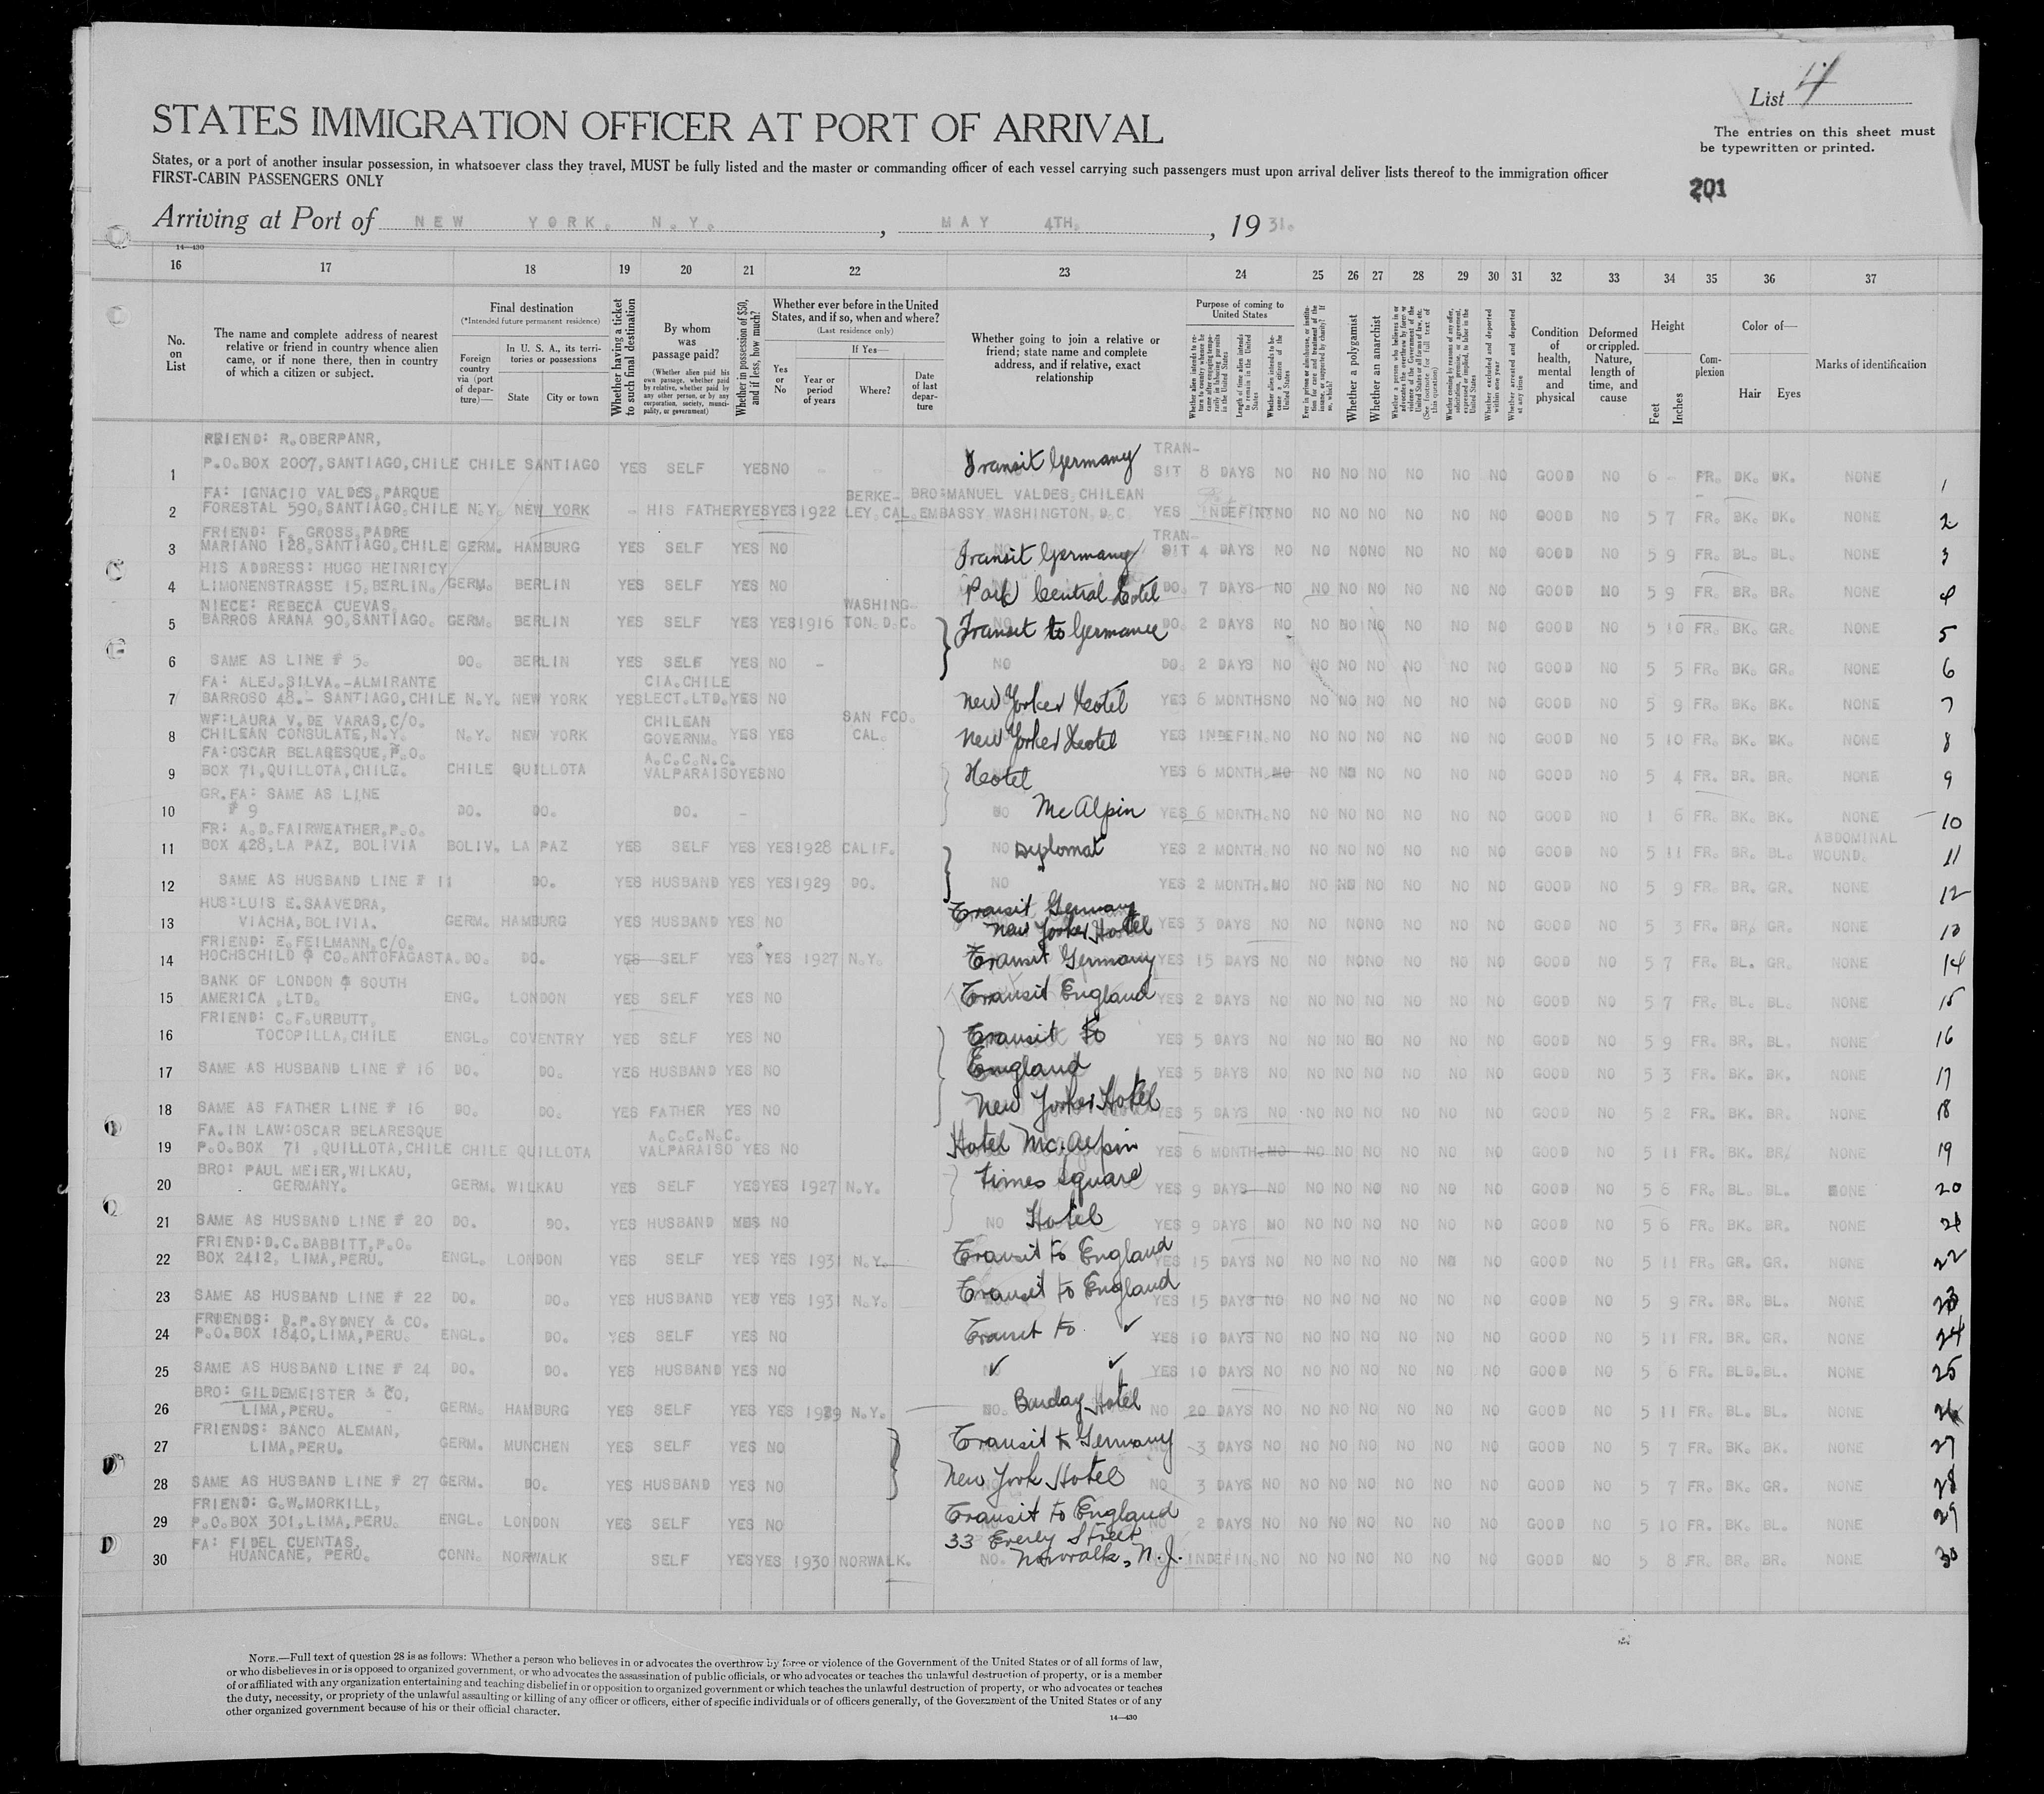 List 4
STATES IMMIGRATION OFFICER AT PORT OF ARRIVAL
The entries on this sheet must
be typewritten or printed.
States, or a port of another insular possession, in whatsoever class they travel, MUST be fully listed and the master or commanding officer of each vessel carrying such passengers must upon arrival deliver lists thereof to the immigration officer
FIRST-CABIN PASSENGERS ONLY
201
Arriving at Port of NEW YORK. N.Y. , MAY 4TH. , 19 31.
14—430
16 17 18 19 20 21 22 23 24 25 26 27 28 29 30 31 32 33 34 35 36 37
No. on List
The name and complete address of nearest relative or friend in country whence alien came, or if none there, then in country of which a citizen or subject.
Final destination
(*Intended future permanent residence)
Foreign country via (port of departure)—
In U. S. A., its territories or possessions
State City or town
Whether having a ticket to such final destination
By whom was passage paid?
(Whether alien paid his own passage, whether paid by relative, whether paid by any other person, or by any corporation, society, municipality, or government)
Whether in possession of $50, and if less, how much?
Whether ever before in the United States, and if so, when and where?
(Last residence only)
If Yes—
Yes or No
Year or period of years
Where?
Date of last departure
Whether going to join a relative or friend; state name and complete address, and if relative, exact relationship
Purpose of coming to United States
Length of time alien intends to remain in the United States
Whether alien intends to become a citizen of the United States
Whether a polygamist
Whether an anarchist
Whether excluded and deported within one year
Whether arrested and deported at any time
Condition of health, mental and physical
Deformed or crippled. Nature, length of time, and cause
Height
Feet Inches
Complexion
Color of—
Hair Eyes
Marks of identification
FRIEND: R.OBERPANR,
1 P.O.BOX 2007,SANTIAGO,CHILE CHILE SANTIAGO YES SELF YES NO - - Transit Germany TRAN-SIT 8 DAYS NO NO NO NO NO NO NO GOOD NO 6 - FR. DK. DK. NONE 1
FA: IGNACIO VALDES,PARQUE BERKE- BRO:MANUEL VALDES,CHILEAN
2 FORESTAL 590,SANTIAGO,CHILE N.Y. NEW YORK - HIS FATHER YES YES 1922 LEY,CAL. EMBASSY WASHINGTON,D.C. YES INDEFIN. NO NO NO NO NO NO NO GOOD NO 5 7 FR. BK. DK. NONE 2
FRIEND: F. GROSS,PADRE
3 MARIANO 128,SANTIAGO,CHILE GERM. HAMBURG YES SELF YES NO Transit Germany TRAN-SIT 4 DAYS NO NO NO NO NO NO NO GOOD NO 5 9 FR. BL. BL. NONE 3
HIS ADDRESS: HUGO HEINRICY
4 LIMONENSTRASSE 15,BERLIN. GERM. BERLIN YES SELF YES NO Park Central Hotel DO. 7 DAYS NO NO NO NO NO NO NO GOOD NO 5 9 FR. BR. BR. NONE 4
NIECE: REBECA CUEVAS, WASHING-
5 BARROS ARANA 90,SANTIAGO. GERM. BERLIN YES SELF YES YES 1916 TON.D.C. Transit to Germany DO. 2 DAYS NO NO NO NO NO NO NO GOOD NO 5 10 FR. BK. GR. NONE 5
6 SAME AS LINE # 5. DO. BERLIN YES SELF YES NO - NO DO. 2 DAYS NO NO NO NO NO NO NO GOOD NO 5 5 FR. BK. GR. NONE 6
FA: ALEJ.SILVA.-ALMIRANTE CIA.CHILE
7 BARROSO 48.- SANTIAGO,CHILE N.Y. NEW YORK YES LECT.LTD. YES NO New Yorker Hotel YES 6 MONTHS NO NO NO NO NO NO NO GOOD NO 5 9 FR. BK. BK. NONE 7
WF:LAURA V.DE VARAS,C/O. CHILEAN SAN FCO.
8 CHILEAN CONSULATE,N.Y. N.Y. NEW YORK GOVERNM. YES YES CAL. New Yorker Hotel YES INDEFIN. NO NO NO NO NO NO NO GOOD NO 5 10 FR. BK. BK. NONE 8
FA:OSCAR BELARESQUE,P.O. A.C.C.N.C.
9 BOX 71,QUILLOTA,CHILE. CHILE QUILLOTA VALPARAISO YES NO Hotel YES 6 MONTH. NO NO NO NO NO NO NO GOOD NO 5 4 FR. BR. BR. NONE 9
GR.FA: SAME AS LINE
10 # 9 DO. DO. DO. - NO McAlpin YES 6 MONTH. NO NO NO NO NO NO NO GOOD NO 1 6 FR. BK. BK. NONE 10
FR: A.D.FAIRWEATHER,P.O. ABDOMINAL
11 BOX 428,LA PAZ, BOLIVIA BOLIV. LA PAZ YES SELF YES YES 1928 CALIF. NO Diplomat YES 2 MONTH. NO NO NO NO NO NO NO GOOD NO 5 11 FR. BR. BL. WOUND. 11
12 SAME AS HUSBAND LINE # 11 DO. YES HUSBAND YES YES 1929 DO. NO YES 2 MONTH. NO NO NO NO NO NO NO GOOD NO 5 9 FR. BR. GR. NONE 12
HUS:LUIS E.SAAVEDRA, Transit Germany
13 VIACHA,BOLIVIA. GERM. HAMBURG YES HUSBAND YES NO New Yorker Hotel YES 3 DAYS NO NO NO NO NO NO NO GOOD NO 5 3 FR. BR. GR. NONE 13
FRIEND: E.FEILMANN,C/O.
14 HOCHSCHILD & CO.ANTOFAGASTA. DO. DO. YES SELF YES YES 1927 N.Y. Transit Germany YES 15 DAYS NO NO NO NO NO NO NO GOOD NO 5 7 FR. BL. GR. NONE 14
BANK OF LONDON & SOUTH
15 AMERICA ,LTD. ENG. LONDON YES SELF YES NO Transit England YES 2 DAYS NO NO NO NO NO NO NO GOOD NO 5 7 FR. BL. BL. NONE 15
FRIEND: C.F.URBUTT,
16 TOCOPILLA,CHILE ENGL. COVENTRY YES SELF YES NO Transit to YES 5 DAYS NO NO NO NO NO NO NO GOOD NO 5 9 FR. BR. BL. NONE 16
17 SAME AS HUSBAND LINE # 16 DO. DO. YES HUSBAND YES NO England YES 5 DAYS NO NO NO NO NO NO NO GOOD NO 5 3 FR. BK. BK. NONE 17
18 SAME AS FATHER LINE # 16 DO. DO. YES FATHER YES NO New Yorker Hotel YES 5 DAYS NO NO NO NO NO NO NO GOOD NO 5 2 FR. BK. BR. NONE 18
FA.IN LAW:OSCAR BELARESQUE A.C.C.N.C.
19 P.O.BOX 71 ,QUILLOTA,CHILE CHILE QUILLOTA VALPARAISO YES NO Hotel McAlpin YES 6 MONTH. NO NO NO NO NO NO NO GOOD NO 5 11 FR. BK. BR. NONE 19
BRO: PAUL MEIER,WILKAU,
20 GERMANY. GERM. WILKAU YES SELF YES YES 1927 N.Y. Times Square YES 9 DAYS NO NO NO NO NO NO NO GOOD NO 5 6 FR. BL. BL. NONE 20
21 SAME AS HUSBAND LINE # 20 DO. DO. YES HUSBAND YES NO NO Hotel YES 9 DAYS NO NO NO NO NO NO NO GOOD NO 5 6 FR. BK. BR. NONE 21
FRIEND:D.C.BABBITT,P.O.
22 BOX 2412, LIMA,PERU. ENGL. LONDON YES SELF YES YES 1931 N.Y. Transit to England YES 15 DAYS NO NO NO NO NO NO NO GOOD NO 5 11 FR. GR. GR. NONE 22
23 SAME AS HUSBAND LINE # 22 DO. DO. YES HUSBAND YES YES 1931 N.Y. Transit to England YES 15 DAYS NO NO NO NO NO NO NO GOOD NO 5 9 FR. BR. BL. NONE 23
FRIENDS: D.P.SYDNEY & CO.
24 P.O.BOX 1840,LIMA,PERU. ENGL. DO. YES SELF YES NO Transit to ✓ YES 10 DAYS NO NO NO NO NO NO NO GOOD NO 5 11 FR. BR. GR. NONE 24
25 SAME AS HUSBAND LINE # 24 DO. DO. YES HUSBAND YES NO ✓ ✓ YES 10 DAYS NO NO NO NO NO NO NO GOOD NO 5 6 FR. BLD. BL. NONE 25
BRO: GILDEMEISTER & CO,
26 LIMA,PERU. GERM. HAMBURG YES SELF YES YES 1929 N.Y. NO. Barclay Hotel NO 20 DAYS NO NO NO NO NO NO NO GOOD NO 5 11 FR. BL. BL. NONE 26
FRIENDS: BANCO ALEMAN,
27 LIMA,PERU. GERM. MUNCHEN YES SELF YES NO Transit to Germany 3 DAYS NO NO NO NO NO NO NO GOOD NO 5 7 FR. BK. BK. NONE 27
28 SAME AS HUSBAND LINE # 27 GERM. DO. YES HUSBAND YES NO New York Hotel NO 3 DAYS NO NO NO NO NO NO NO GOOD NO 5 7 FR. BK. GR. NONE 28
FRIEND: G.W.MORKILL, Transit to England
29 P.O.BOX 301,LIMA,PERU. ENGL. LONDON YES SELF YES NO 2 DAYS NO NO NO NO NO NO NO GOOD NO 5 10 FR. BK. BL. NONE 29
FA: FIDEL CUENTAS, 33 Everly Street
30 HUANCANE, PERU. CONN. NORWALK SELF YES YES 1930 NORWALK. NO. Norwalk, N.J. INDEFIN. NO NO NO NO NO NO NO GOOD NO 5 8 FR. BR. BR. NONE 30
NOTE.—Full text of question 28 is as follows: Whether a person who believes in or advocates the overthrow by force or violence of the Government of the United States or of all forms of law,
or who disbelieves in or is opposed to organized government, or who advocates the assassination of public officials, or who advocates or teaches the unlawful destruction of property, or is a member
of or affiliated with any organization entertaining and teaching disbelief in or opposition to organized government or which teaches the unlawful destruction of property, or who advocates or teaches
the duty, necessity, or propriety of the unlawful assaulting or killing of any officer or officers, either of specific individuals or of officers generally, of the Government of the United States or of any
other organized government because of his or their official character.
14—430